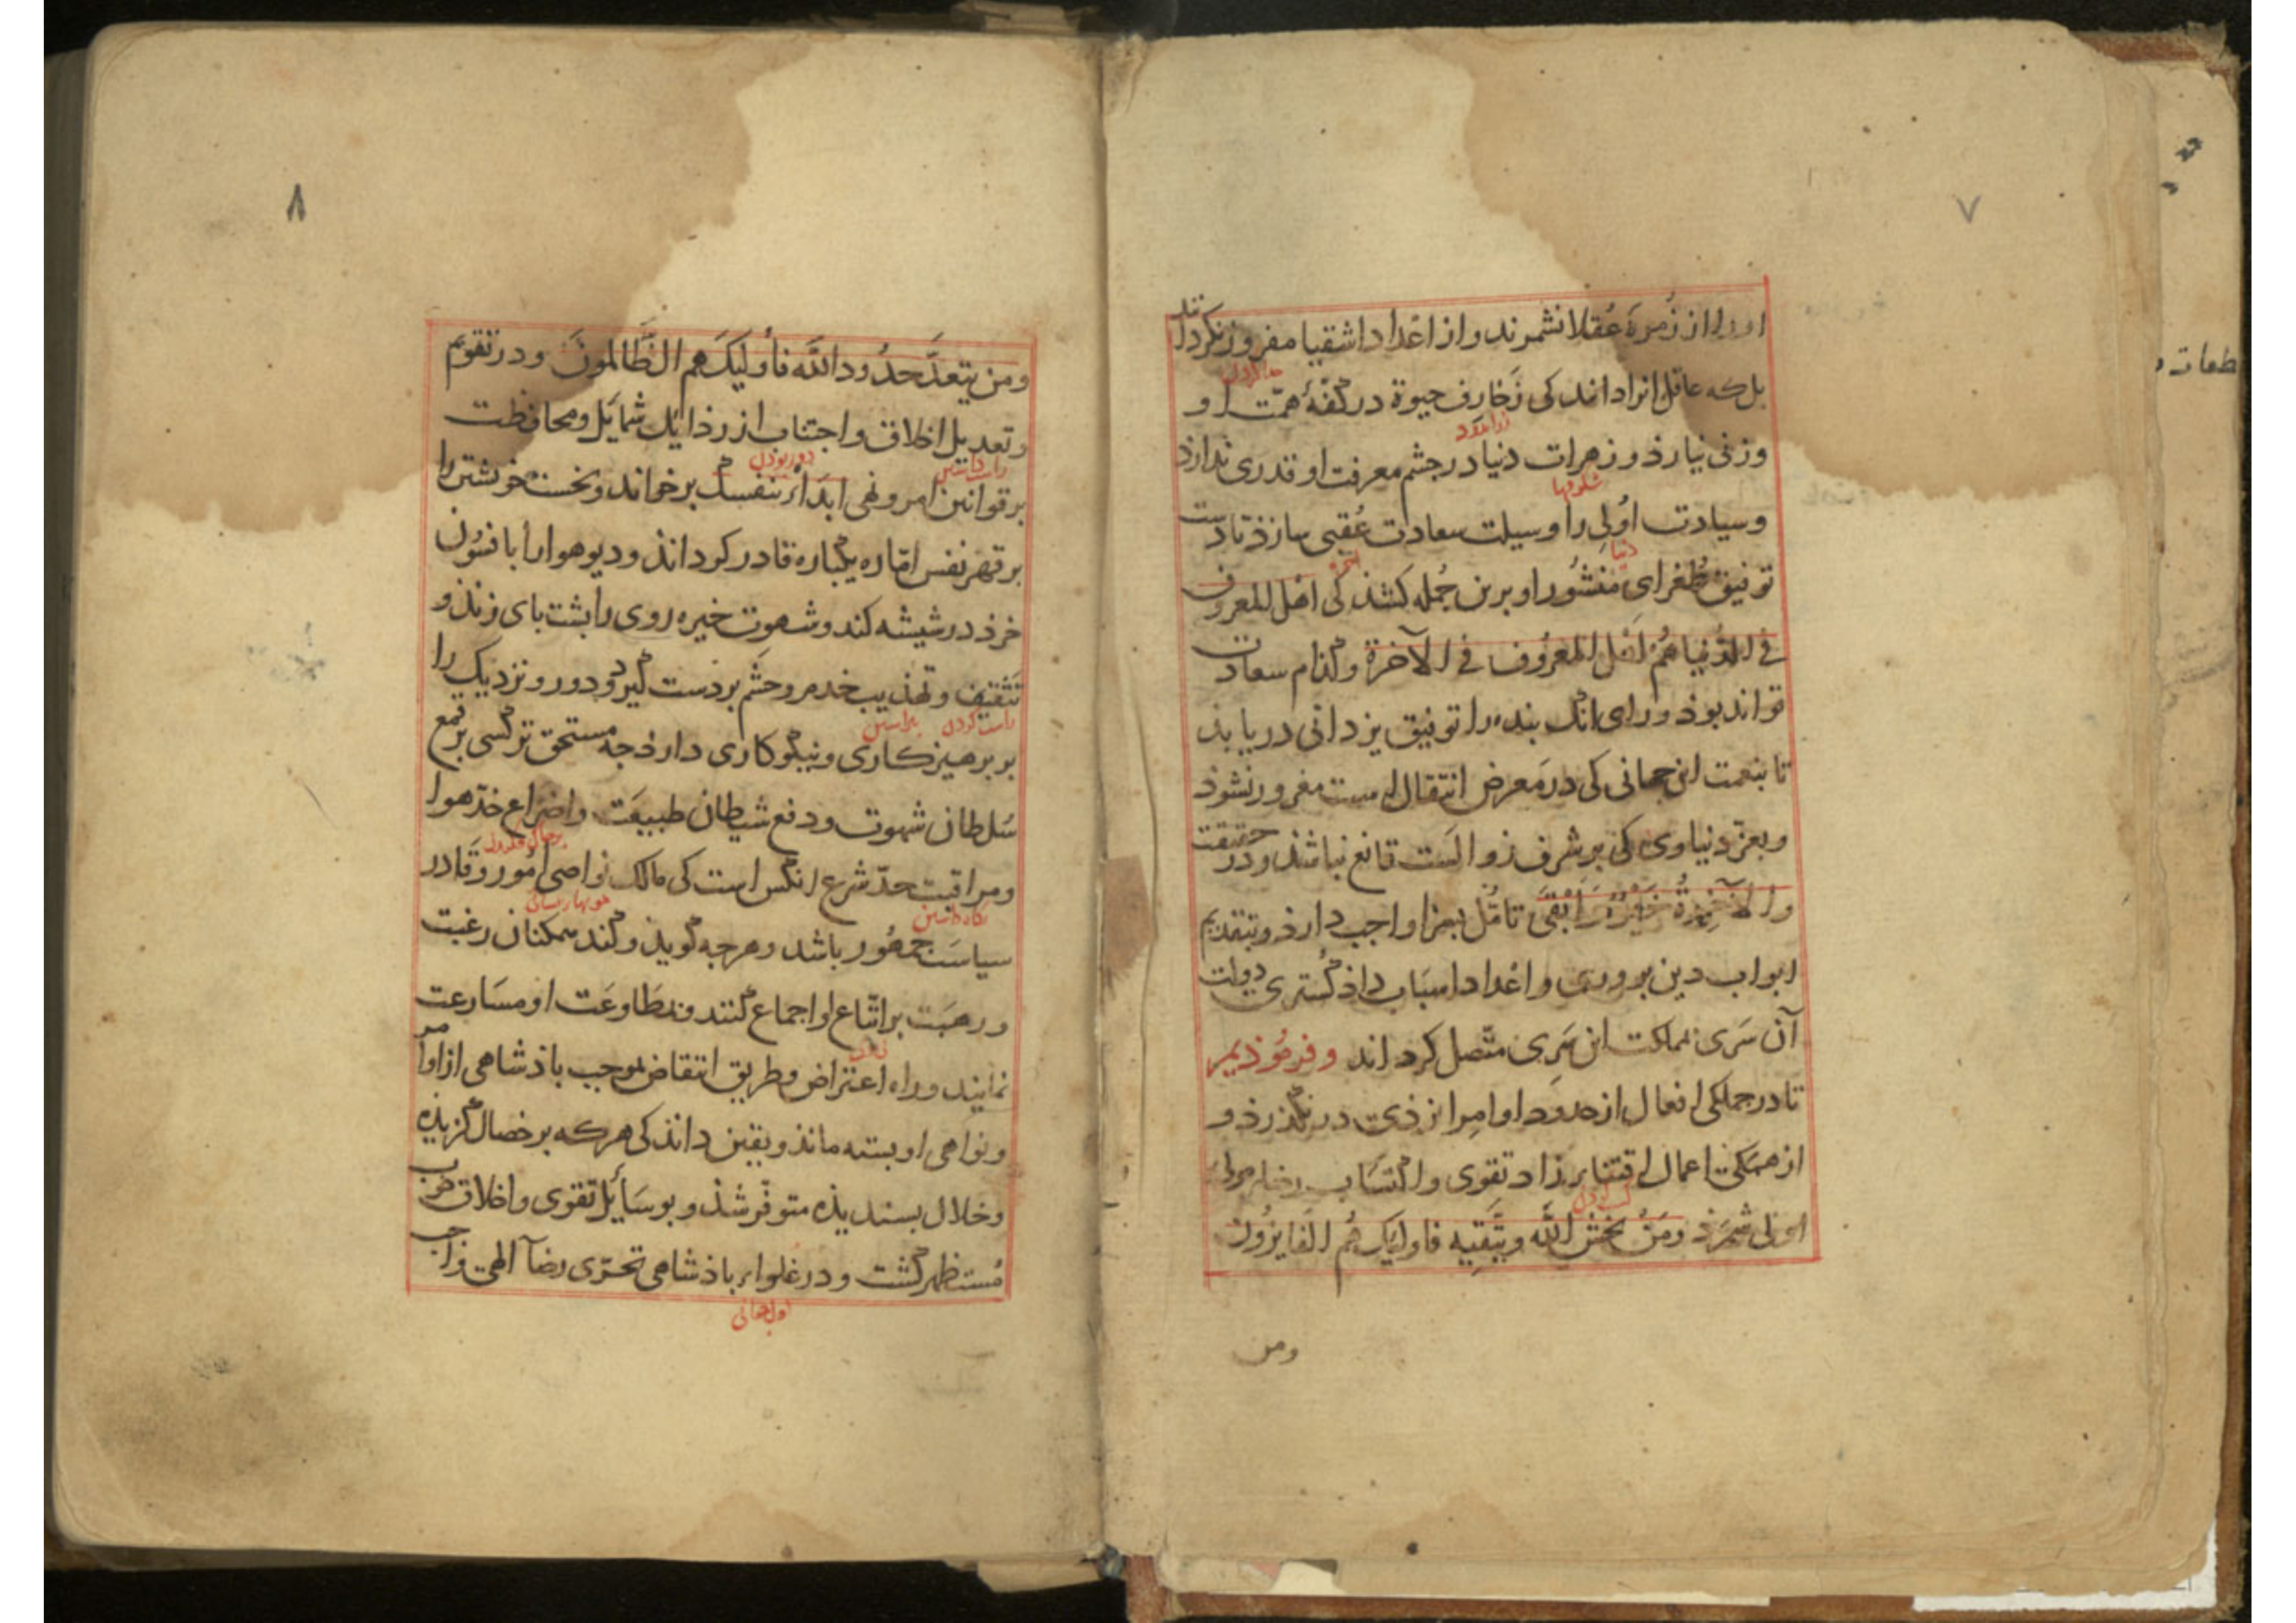 ۷
او را از زُمرهٔ عُقلا نشمرند و از اعداد اشقیا مفروز نکردانند
بل که عاقل انرا داند کی زَخارف حیوة در کفّهٔ همّت او
وزنی نیارد و زهرات دنیا در جشم معرفت او قدری ندارد
شکوفها
وسیادت اُولی را وسیلت سعادت عُقبی سازذ تا دست
دنیا
توفیق طُغرای مَنشُور او برین جُمله کشذ کی اهل المعروف
فی الدُنیا هُمُ اَهل المعرُوف فی الآخرة و کذام سعادت
تواند بوذ ورای انک بنده را توفیق یزدانی دریابذ
تا بنعمت این جهانی کی در مَعرض انتقال است مغرور نشوذ
وبعزّ دنیاوی کی بر شرف زوالَست قانع نباشذ و در حقیقت
والآخِرةُ خَیرٌ وَ اَبقَی تامّل بسزا واجب دارذ و بتقدیم
ابواب دین بروری و اعْداد اسبَاب داذ کُستری دولت
آن سَری بمملکت این سَری متّصل کرداند و فرمُوذیم
تا در جملکی افعال از حدود اوامِر ایزذی در نکذرذ و
از همکی اعمال اقتناء زاد تقوی و اکتسَاب رضاء مولی
کسب کردن
اولی شمرَذ ومَنْ یخش الله ویتَّقیه فاولیک هُم الفایزُون
ومن
۸
ومن یتعدَّ حدُود الله فأولیک هم الظَّالمونَ و در تقویم
و تعدیل اخلاق و اجتناب از رذایل شمایل و محافظت
راست داشتن
دور بودن
بر قوانین امر و نهی ابدَأ بنفسک برخواند و نخست خویشتن را
بر قهر نفس امّاره یکباره قادر کرداند و دیو هوا را بافسُون
خرذ در شیشه کند و شهوت خیره روی را بشت بای زنذ و
تثقیف و تهذیب خدم و حشم بر دست کیرد و دور و نزدیک را
راست کردن
بر برهیزکاری و نیکوکاری دارذ جه مستحق ترکسی بر قمع
سُلطان شهوت و دفع شیطان طبیعَت و اضراع خدّ هوا
ومراقبت حدّ شرع انکس است کی مالک نواصی امُور و قادر
نکاه داشتن
سیاسَت جمهُور باشد و هرجه کویذ و کند همکنان رغبت
و رهبَت بر اتّباع او اجماع کنند و بمطَاوعَت او مسَارعت
نمایند و راه اعتراض و طریق انتقاض بموجب باذشاهی از اوامر
و نواهی او بسته ماند و یقین داند کی هرکه بر خصال کزیذه
و خلال بسندیذه متوفّر شذ و بوسَائل تقوی و اخلاق خوب
مُستظهر کشت و در غلواء باذشاهی تحرّی رضآ الهی واجب
اول جوانی